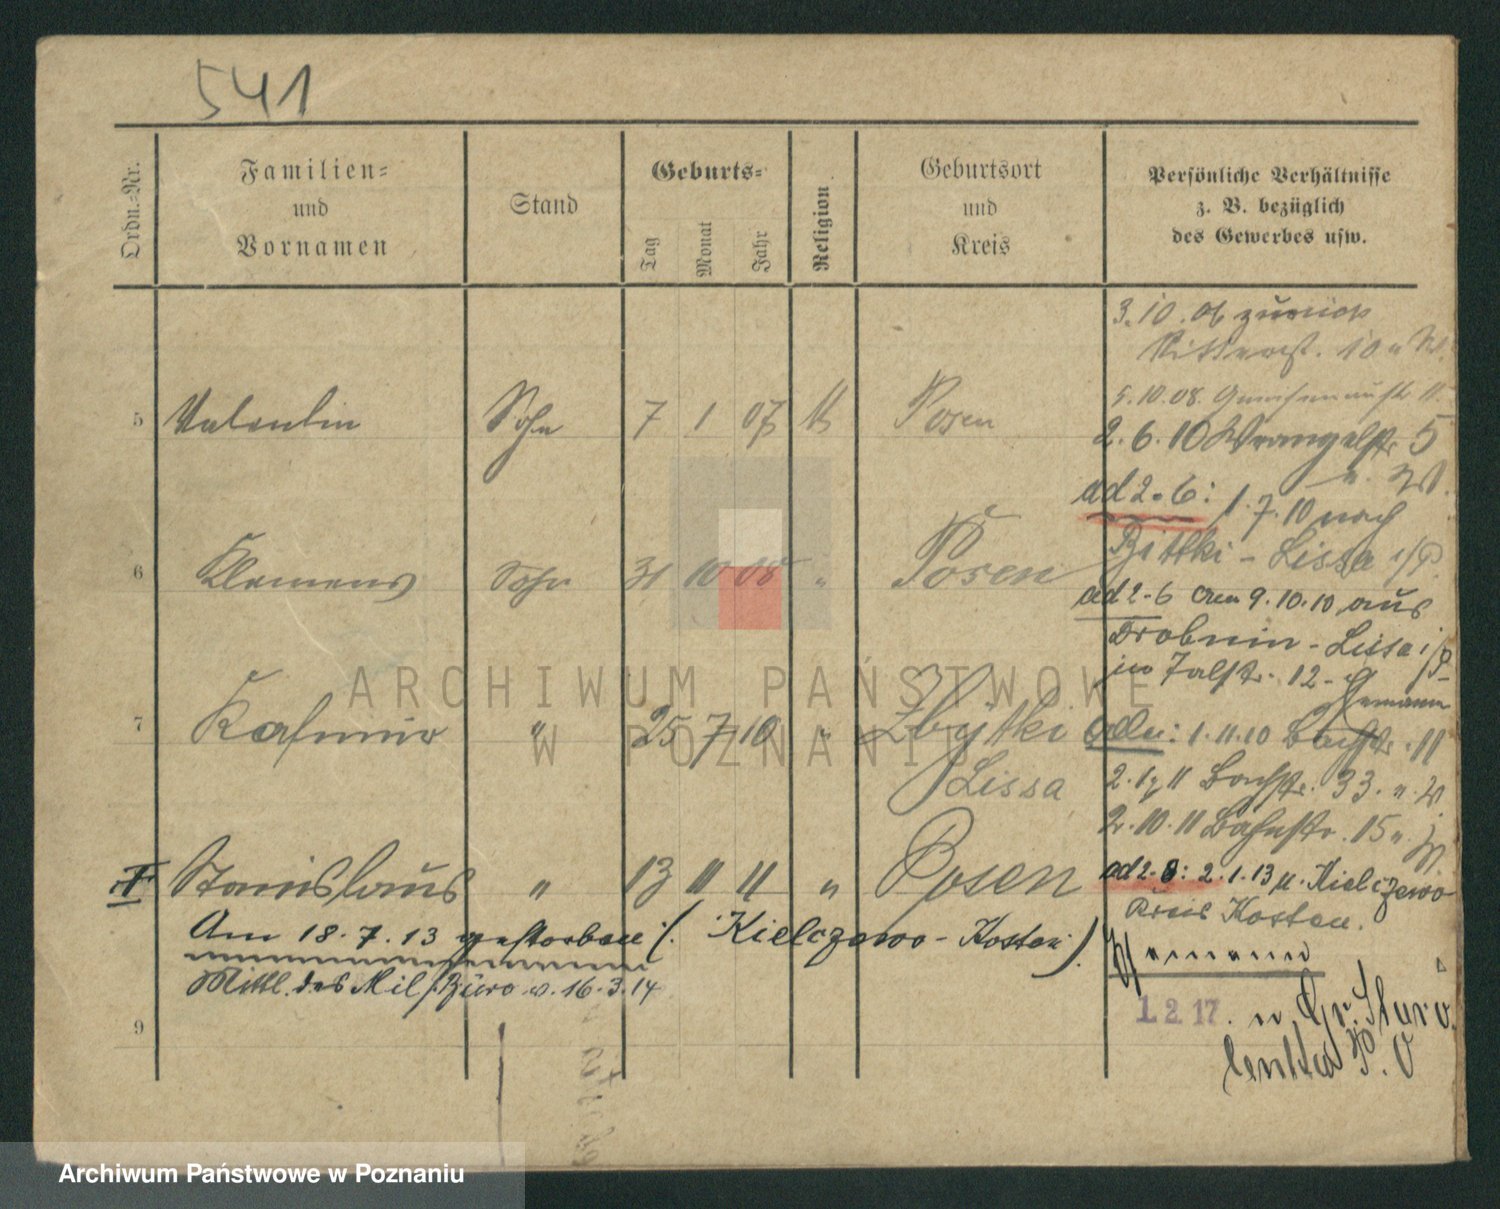 541
Ordn.-Nr.
Familien-
und
Vornamen
Stand
Geburts-
Tag
Monat
Jahr
Religion
Geburtsort
und
Kreis
Persönliche Verhältnisse
z. B. bezüglich
des Gewerbes usw.
3.10.06 zurück
10
5.10.08. Gneisenaustr.
5 Valentin Sohn 7 1 07 Posen
2.6.10 Wrangelstr. 5
ad 2-6: 1.7.10 nach
6 Klemens Sohn 31 10 08 " Posen
Zbitki - Lissa i/P.
ad 2-6 am 9.10.10 aus
Drobnin - Lissa i/P
in Talstr. 12 -
Hemann
7 Kasimir " 25 7 10 " Zbytki
Lissa
alle: 1.11.10 Bachstr. 11
2.1. 11 Bachstr. 33.
2.10.11 Bahnstr. 15
Stanislaus " 13 11 11 " Posen
ad 2-8: 2.1.13 n. Kielczewo
Kreis Kosten.
Am 18.7.13 gestorben (Kielczewo - Kosten)
Hemann
Mittl. des Mil. Büro v. 16.3.14
9
1.2.17. n. Gr. Staro
lenka P. O
ARCHIWUM PAŃSTWOWE
W POZNANIU
Archiwum Państwowe w Poznaniu